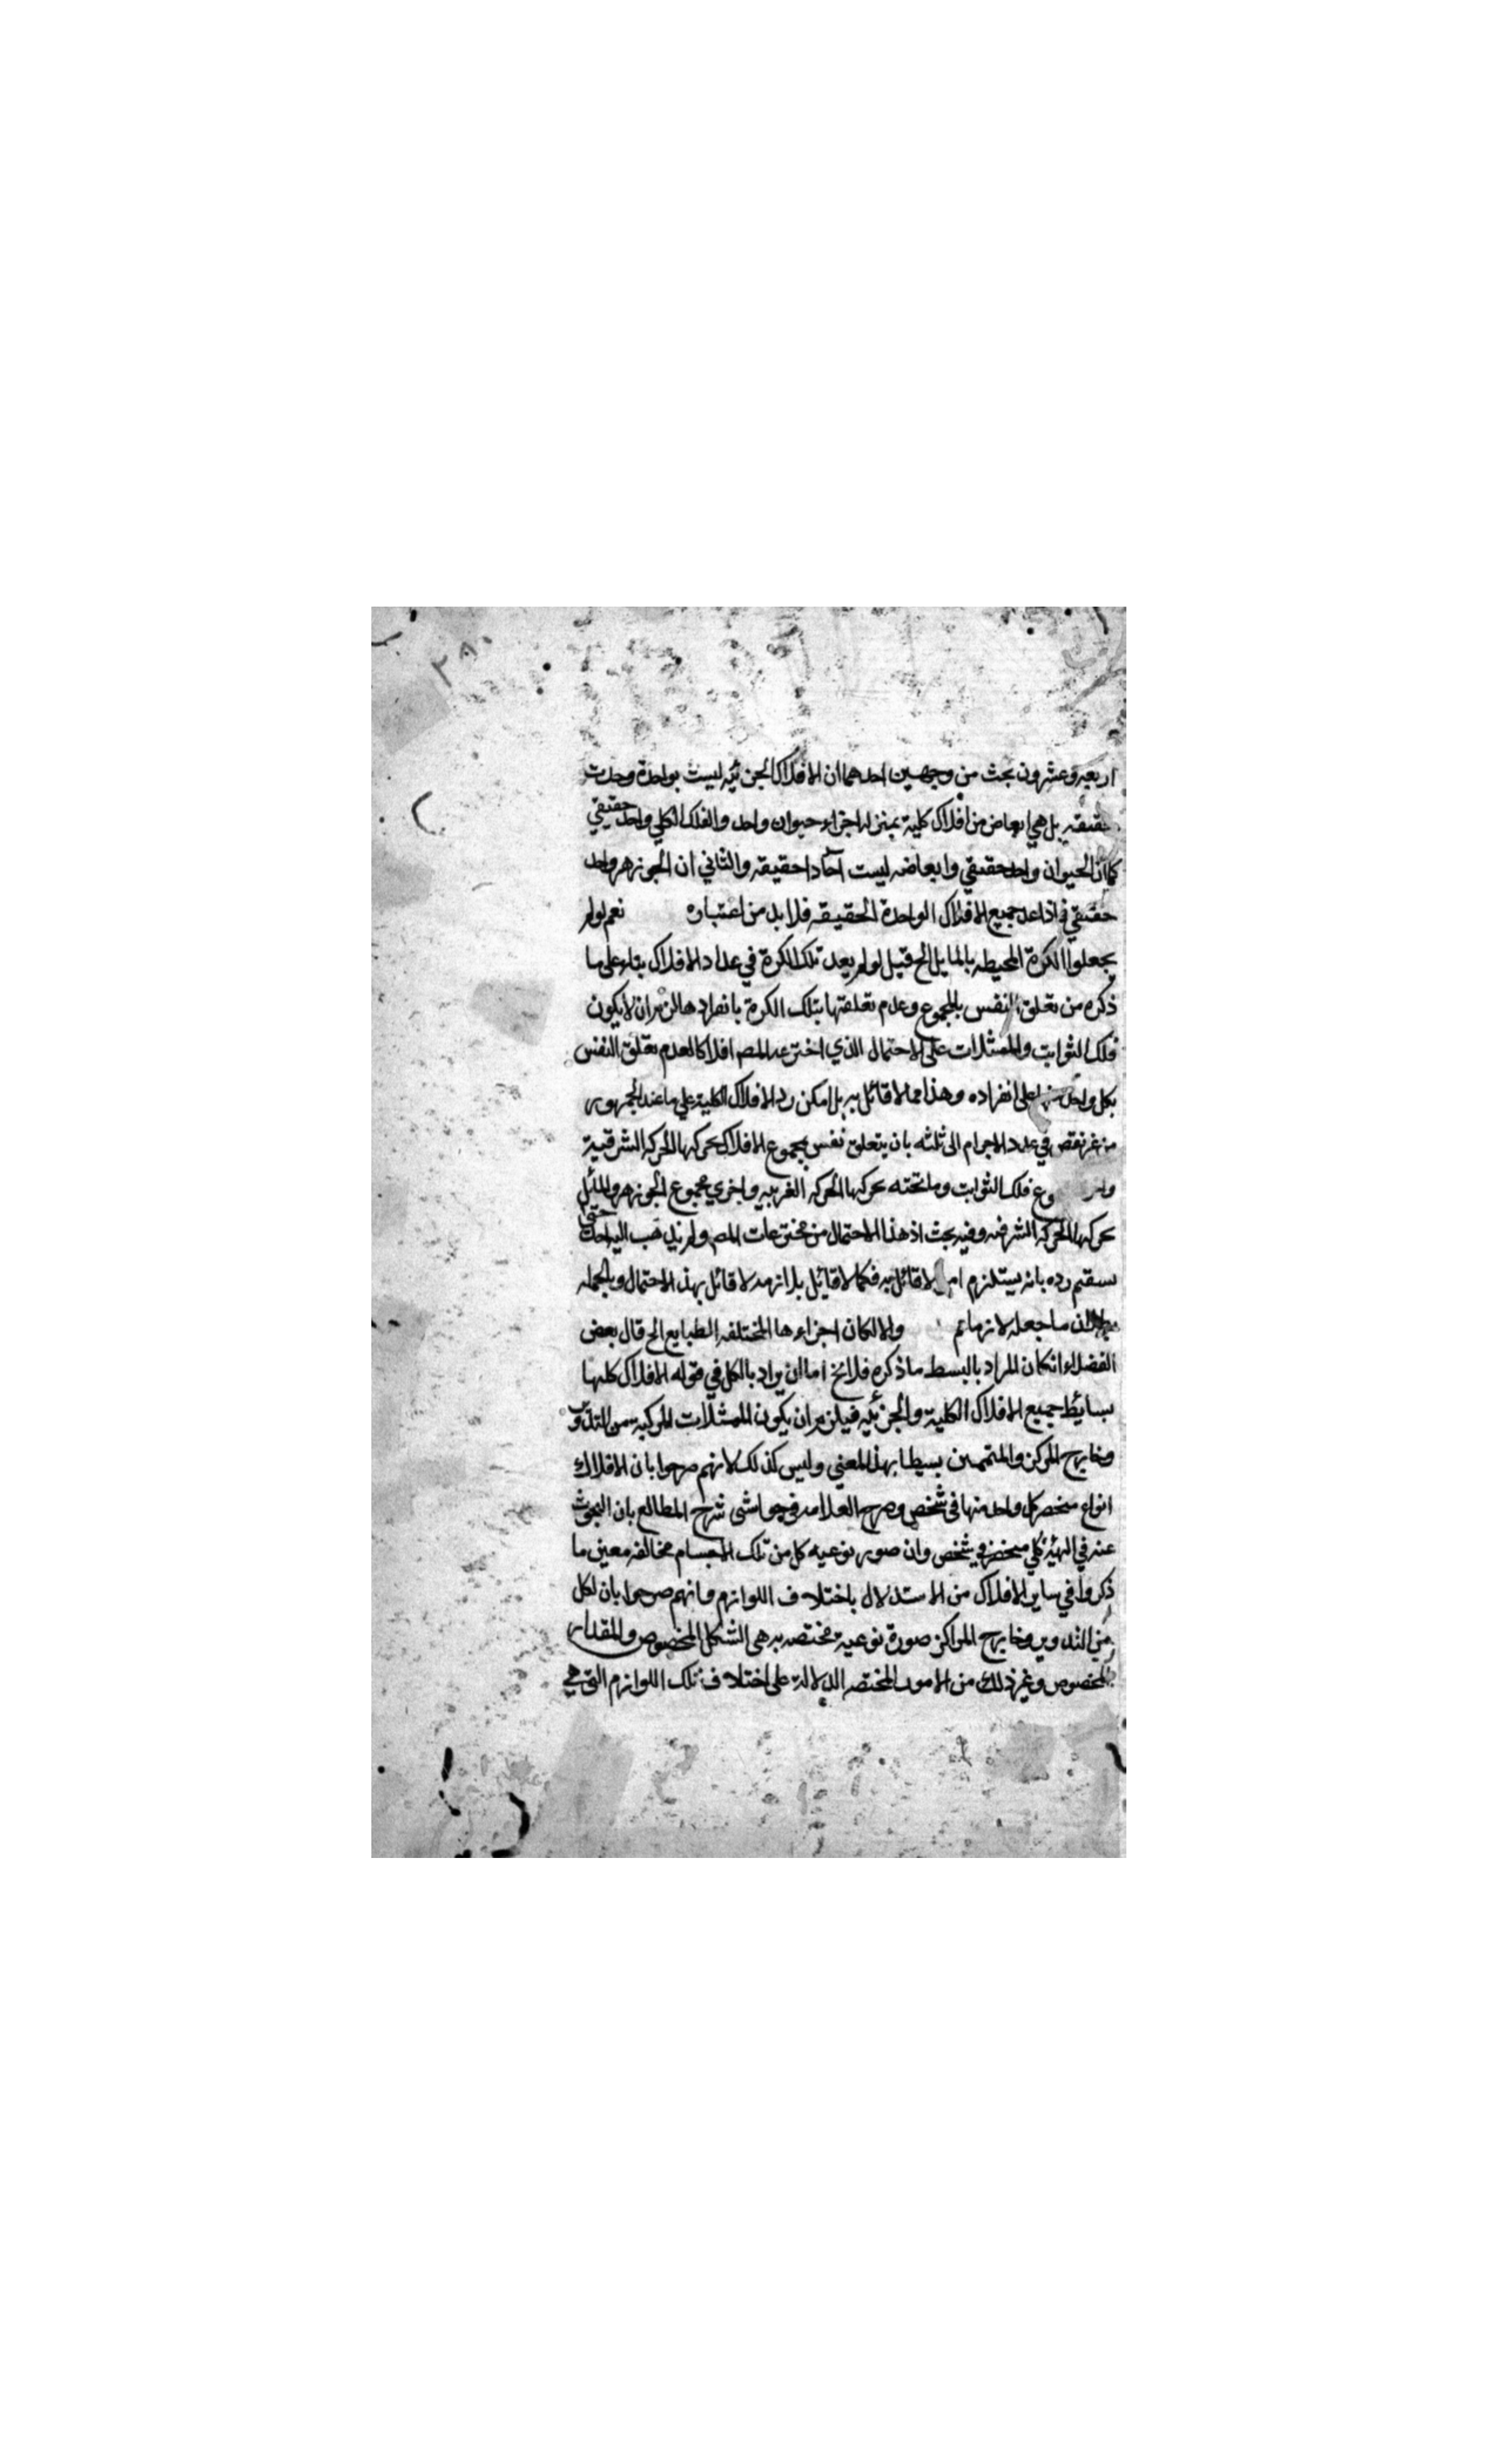 ٢٨٠
اربعة وعشرون بحث من وجهين احدهما ان الافلاك الجزئية ليست بواحدة وحدت
حقيقة بل هي ابعاض من افلاك كلية بمنزلة اجزاء حيوان واحد والفلك الكلي واحد حقيقي
كما ان الحيوان واحد حقيقي وابعاضه ليست آحادا حقيقة والثاني ان الجوزهر واحد
حقيقي فاذا عد جميع الافلاك الواحدة الحقيقة فلا بد من اعتباره نعم لو لم
يجعلوا الكرة المحيطة بالمايل الخ قيل لو لم يعد تلك الكرة في عداد الافلاك بناء على ما
ذكره من تعلق النفس بالمجموع وعدم تعلقها بتلك الكرة بانفرادها لزم ان لا يكون
فلك الثوابت والممثلات على الاحتمال الذي اخترعه المص افلاكا لعدم تعلق النفس
بكل واحد منها على انفراده وهذا مما لا قائل به بل امكن رد الافلاك الكلية على ما عند الجمهور
من غير نقص في عدد الاجرام الى ثلثة بان يتعلق نفس بمجموع الافلاك يحركها الحركة الشرقية
فلك الثوابت وما تحته يحركها الحركة الغربية واخرى بمجموع الجوزهر والمائل
يحركها الحركة الشرقية وفيه بحث اذ هذا الاحتمال من مخترعات المص ولم يذهب اليه احد حتى
يستقيم رده بانه يستلزم امرا لا قائل به فكما لا قائل بلازمه لا قائل بهذا الاحتمال وبالجملة
بطلان ما جعله لازما تم والا لكان اجزاءها المختلفة الطبايع الخ قال بعض
الفضلاء ان كان المراد بالبسط ما ذكره فلا يخ اما ان يراد بالكل في قوله الافلاك كلها
بسائط جميع الافلاك الكلية والجزئية فيلزم ان يكون الممثلات المركبة من التداوير
وخارج المركز والمتممين بسيطا بهذا المعني وليس كذلك لانهم صرحوا بان الافلاك
انواع منحصر كل واحد منها في شخص وصرح العلامه في حواشي شرح المطالع بان المبحوث
عنه في الهيئة كلي منحصر في شخص وان صور نوعيه كل من تلك الاجسام مخالفه معين ما
ذكروا في ساير الافلاك من الاستدلال باختلاف اللوازم وانهم صرحوا بان لكل
من التداوير وخارج المراكز صورة نوعية مختصة به هي الشكل المخصوص والمقدار
المخصوص وغير ذلك من الامور المختصه الدلالة على اختلاف تلك اللوازم التي هي